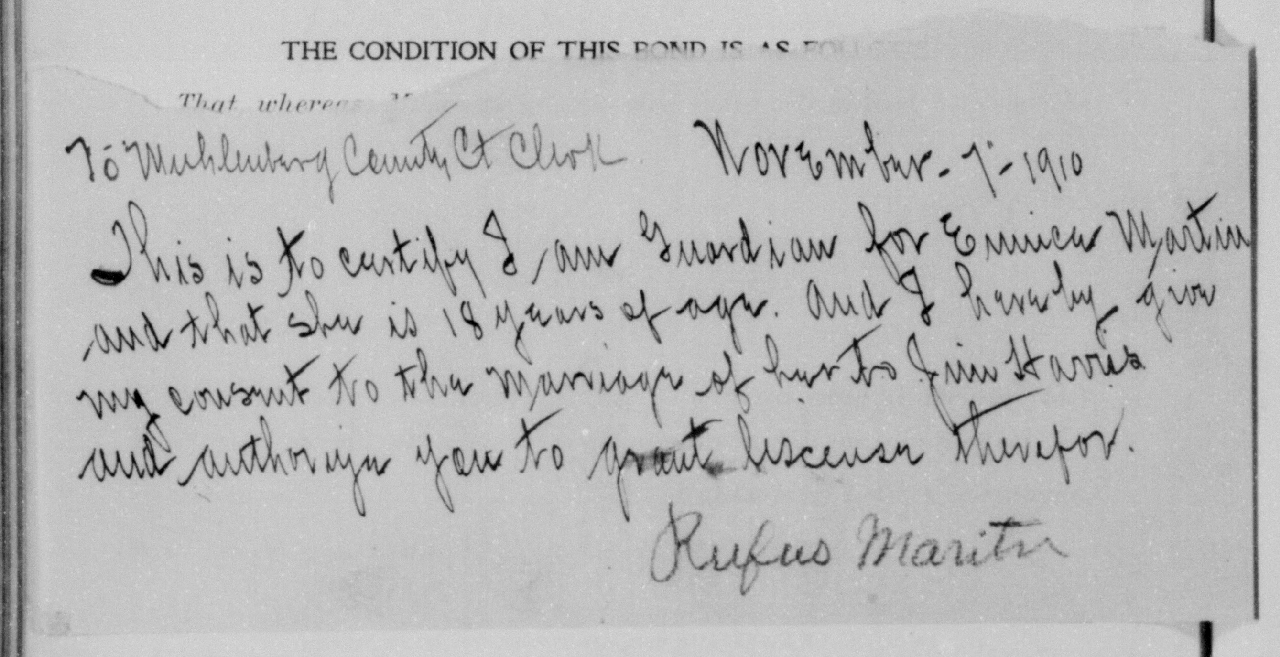 THE CONDITION OF THIS BOND IS AS FOLL
That whereas M
To Muhlenberg County Ct Clerk November - 7 - 1910
This is to certify I am Guardian for Eunice Martin
and that she is 18 years of age. And I hereby give
my consent to the marriage of her to Jim Harris
and authorize you to grant liscense therefor.
Rufus Maritn